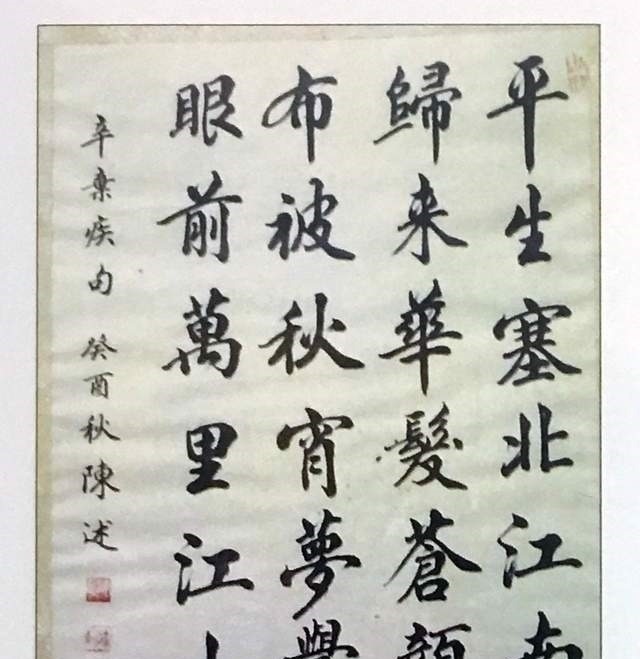 平生塞北江南
歸来華髮蒼顏
布被秋宵夢覺
眼前萬里江山
辛棄疾句 癸酉秋陳述